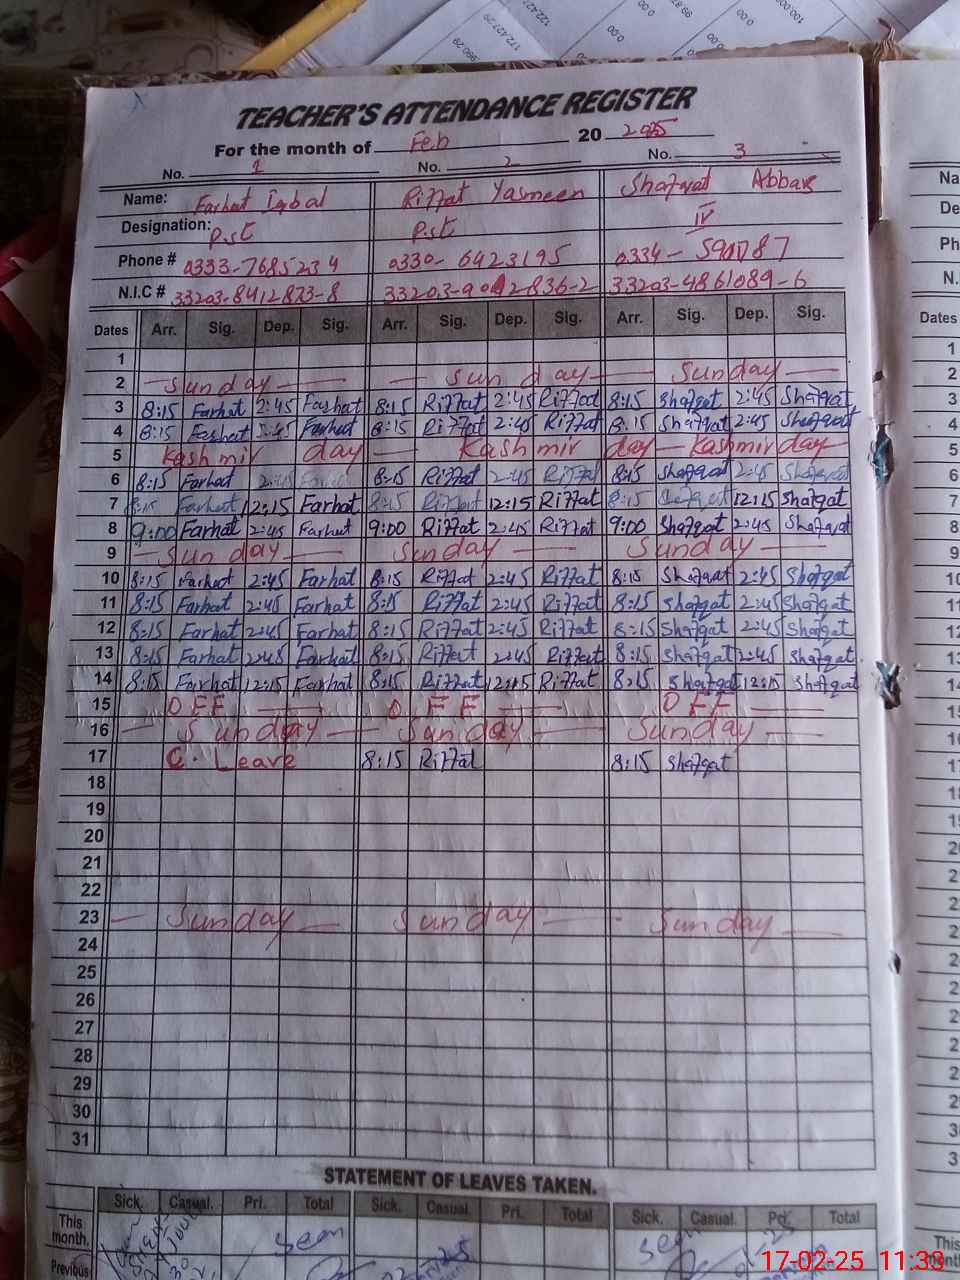 TEACHER'S ATTENDANCE REGISTER
For the month of Feb 20 2025
No. 1 No. 2 No. 3
Name: Farhat Iqbal Riffat Yasmeen Shafqat Abbas
Designation: P.S.T P.S.T IV
Phone # 0333-7685234 0330-6423195 0334-
N.I.C # 33203-8412873-8 33203-4861089-6
Dates Arr. Sig. Dep. Sig. Arr. Sig. Dep. Sig. Arr. Sig. Dep. Sig.
1
2 Sunday Sunday Sunday
3 8:15 Farhat 2:45 Farhat 8:15 Riffat 2:45 Riffat 8:15 Shafqat 2:45 Shafqat
4 8:15 Farhat 2:45 Farhat 8:15 Riffat 2:45 Riffat 8:15 Shafqat 2:45 Shafqat
5 Kashmir day Kashmir day Kashmir day
6 8:15 Farhat 2:45 Farhat 8:15 Riffat 2:45 Riffat 8:15 Shafqat 2:45 Shafqat
7 8:15 Farhat 12:15 Farhat 8:15 Riffat 12:15 Riffat 8:15 Shafqat 12:15 Shafqat
8 9:00 Farhat 2:45 Farhat 9:00 Riffat 2:45 Riffat 9:00 Shafqat 2:45 Shafqat
9 Sunday Sunday Sunday
10 8:15 Farhat 2:45 Farhat 8:15 Riffat 2:45 Riffat 8:15 Shafqat 2:45 Shafqat
11 8:15 Farhat 2:45 Farhat 8:15 Riffat 2:45 Riffat 8:15 Shafqat 2:45 Shafqat
12 8:15 Farhat 2:45 Farhat 8:15 Riffat 2:45 Riffat 8:15 Shafqat 2:45 Shafqat
13 8:15 Farhat 2:45 Farhat 8:15 Riffat 2:45 Riffat 8:15 Shafqat 2:45 Shafqat
14 8:15 Farhat 12:15 Farhat 8:15 Riffat 12:15 Riffat 8:15 Shafqat 12:15 Shafqat
15 OFF OFF OFF
16 Sunday Sunday Sunday
17 C. Leave 8:15 Riffat 8:15 Shafqat
18
19
20
21
22
23 Sunday Sunday Sunday
24
25
26
27
28
29
30
31
STATEMENT OF LEAVES TAKEN.
Sick. Casual. Pri. Total Sick. Casual. Pri. Total Sick. Casual. Pri. Total
This month. Seen Seen
Previous
17-02-25 11:33